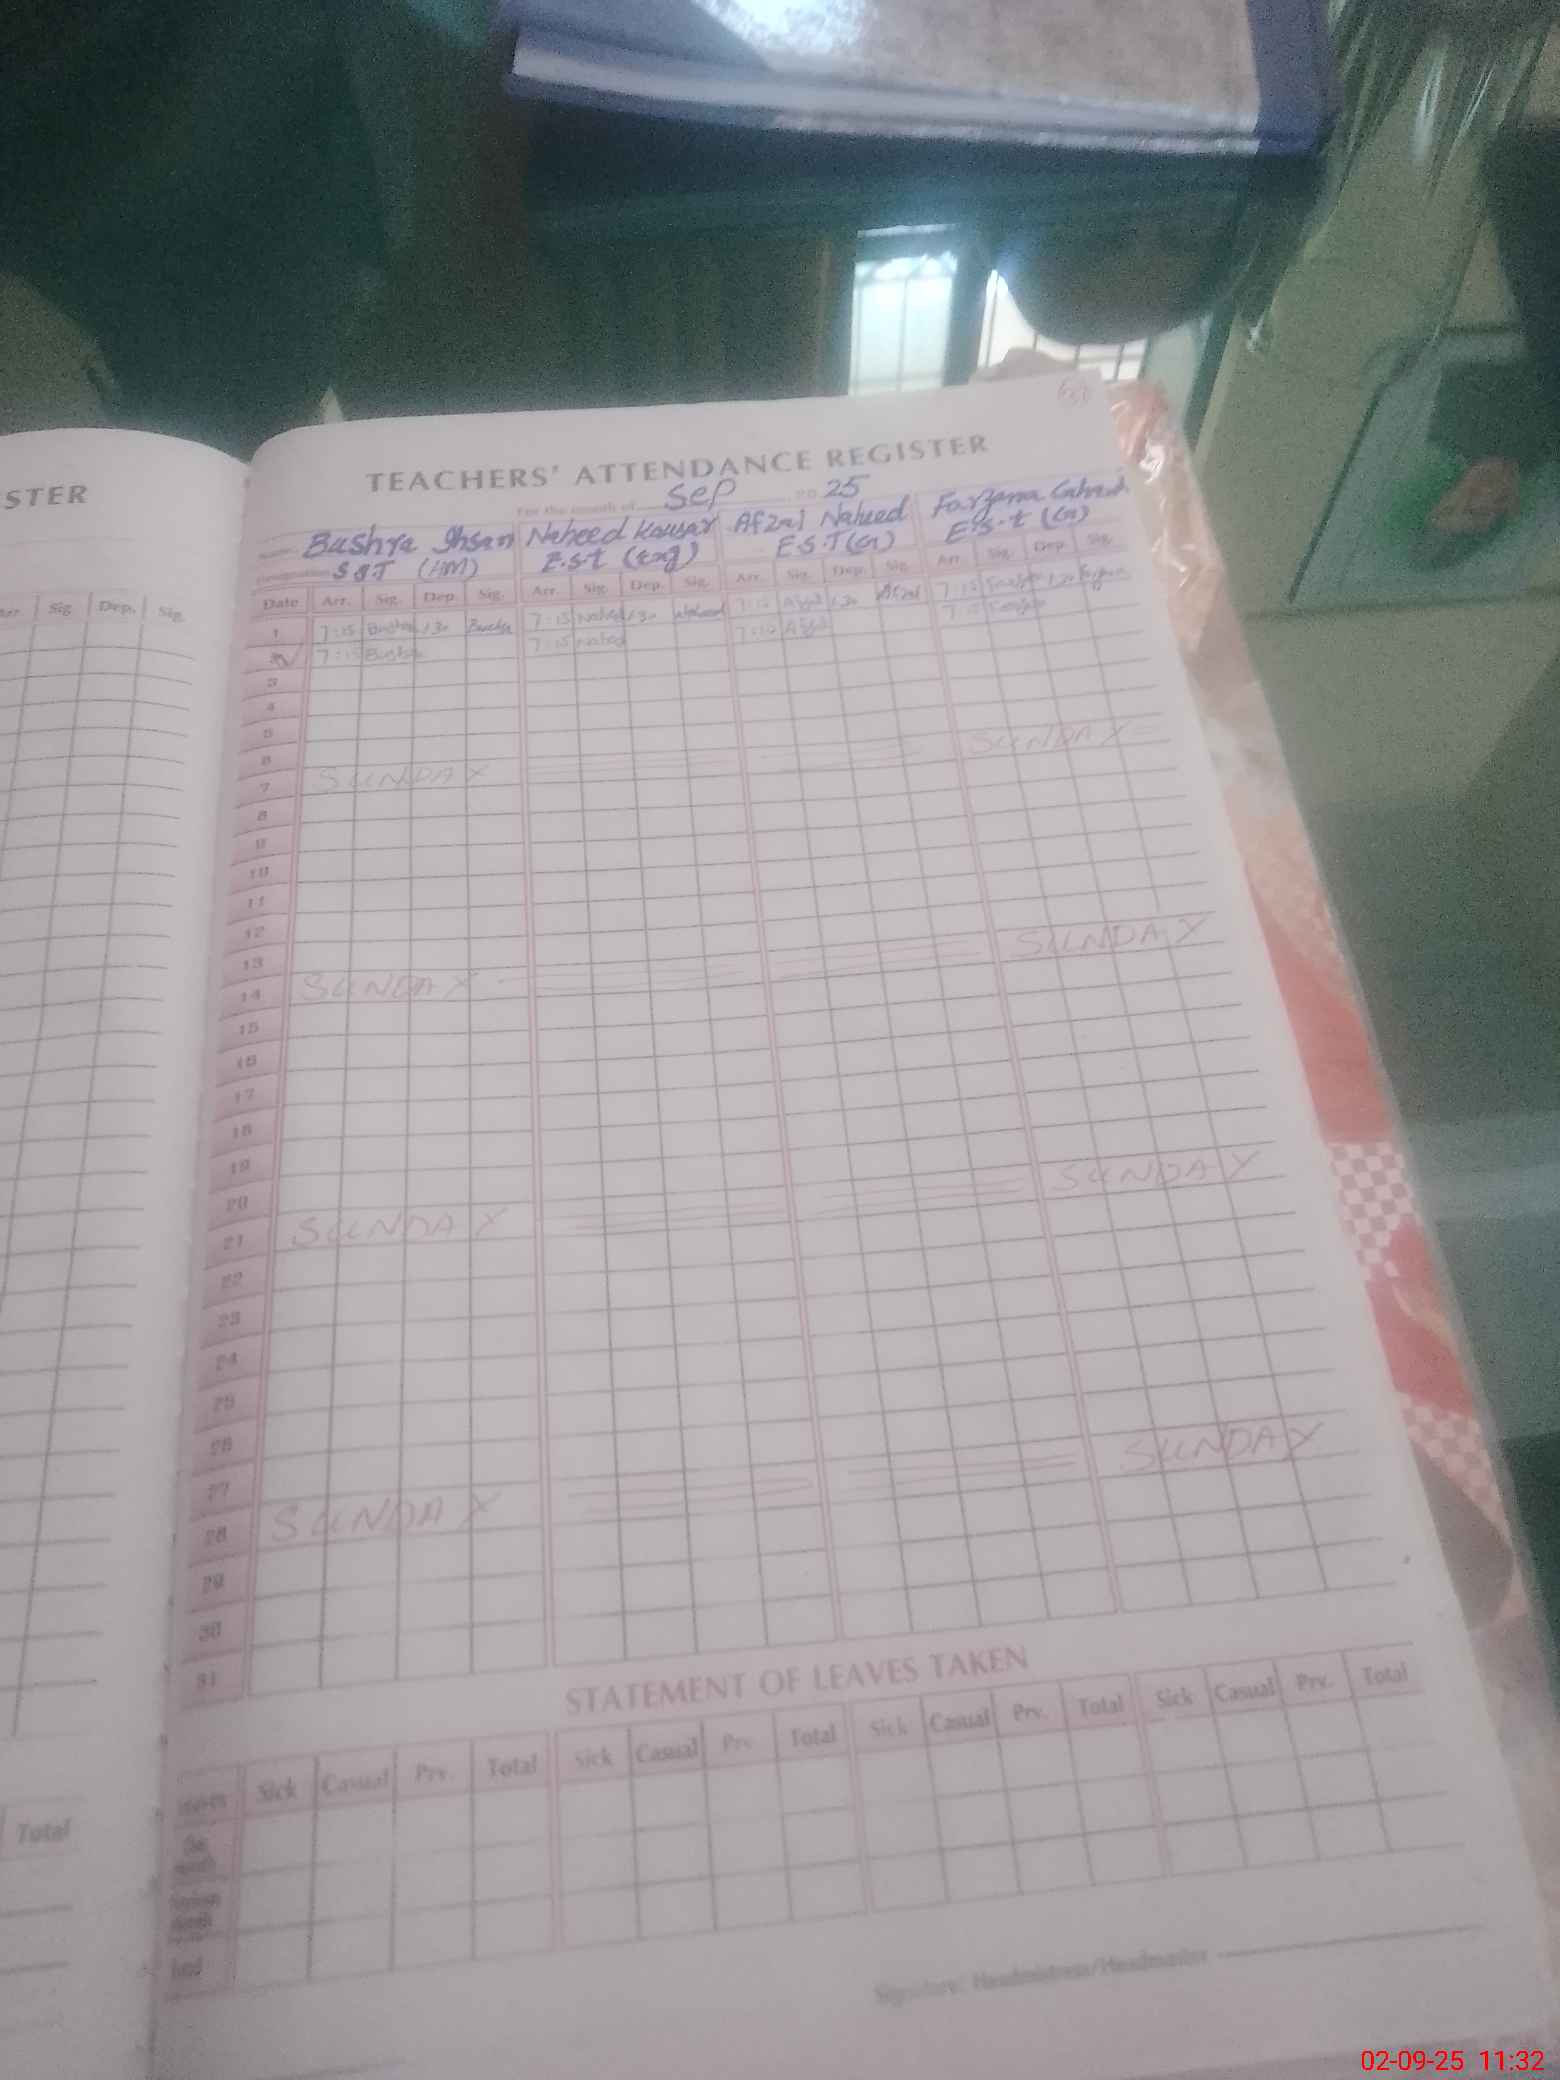 STER
Arr. Sig. Dep. Sig.
Total
TEACHERS' ATTENDANCE REGISTER
For the month of Sep 20 25
Bushra Ihsan Naheed Kousar Afzal Naheed Farzana
S.S.T (HM) E.S.T (Eng) E.S.T (G) E.S.t (G)
Date Arr. Sig. Dep. Sig. Arr. Sig. Dep. Sig. Arr. Sig. Dep. Sig. Arr. Sig. Dep. Sig.
1 7:15 Bushra 1:30 Bushra 7:15 Naheed 1:30 Naheed 7:15 Afzal 1:30 Afzal 7:15 Farzana 1:30 Farzana
7:15 Bushra 7:15 Naheed 7:10 Afzal 7:15 Farzana
3
4
5
6
7 SUNDAY SUNDAY
8
9
10
11
12
13
14 SUNDAY SUNDAY
15
16
17
18
19
20
21 SUNDAY SUNDAY
22
23
24
25
26
27
28 SUNDAY SUNDAY
29
30
31
STATEMENT OF LEAVES TAKEN
Leaves Sick Casual Prv. Total Sick Casual Prv. Total Sick Casual Prv. Total Sick Casual Prv. Total
Signature: Headmistress/Headmaster
02-09-25 11:32